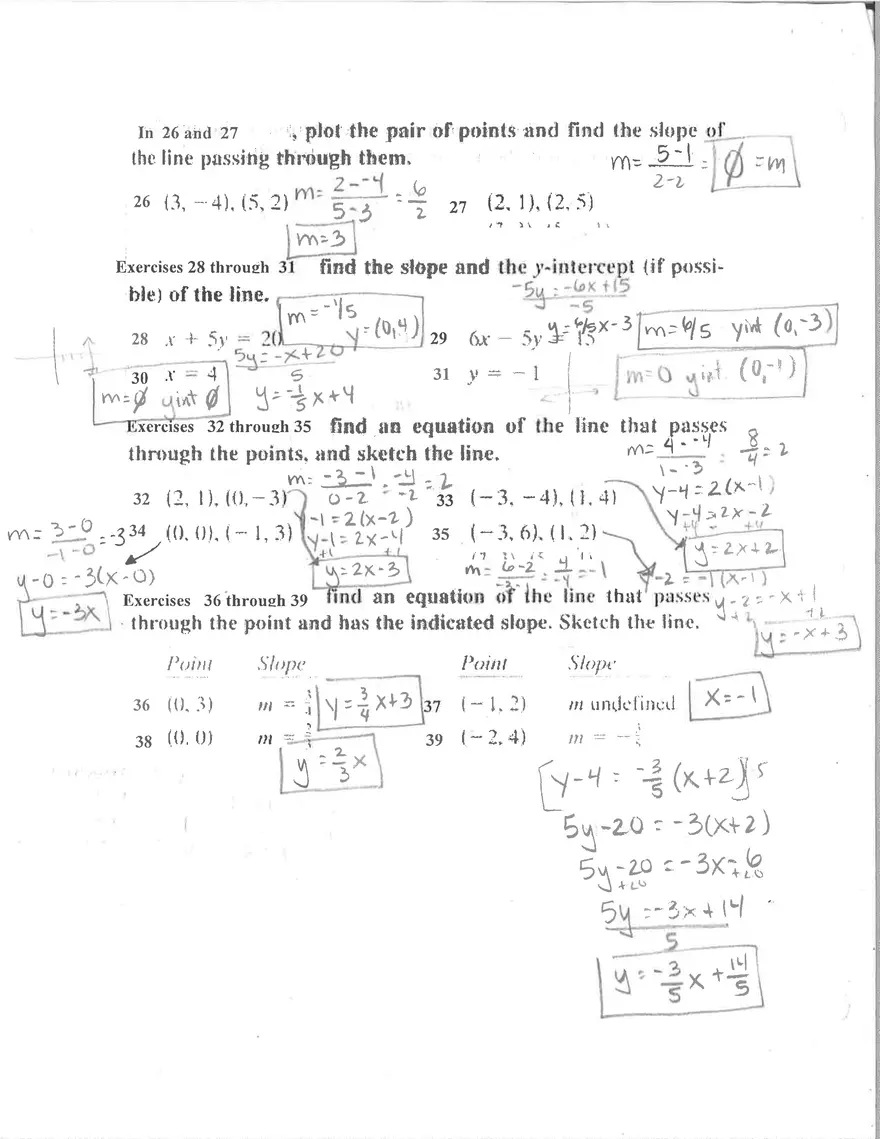 In 26 and 27 , plot the pair of points and find the slope of
the line passing through them.
m= 5-1 / 2-2 = ∅ =m
26 (3, -4), (5, 2) m= 2--4 / 5-3 = 6/2
m=3
27 (2, 1), (2, 5)
Exercises 28 through 31 find the slope and the y-intercept (if possi-
ble) of the line.
28 x + 5y = 20
m=-1/5 y=(0,4)
5y=-x+20 / 5
y=-1/5 x+4
29 6x - 5y = 15
-5y=-6x+15 / -5
y=6/5x-3
m=6/5 yint (0,-3)
30 x = 4
m=∅ yint ∅
31 y = - 1
m=0 yint (0,-1)
Exercises 32 through 35 find an equation of the line that passes
through the points, and sketch the line.
32 (2, 1), (0, -3)
m= -3-1 / 0-2 = -4/-2 = 2
y-1=2(x-2)
y-1=2x-4
+1 +1
y=2x-3
33 (-3, -4), (1, 4)
m= 4--4 / 1--3 = 8/4 = 2
y-4=2(x-1)
y-4=2x-2
+4 +4
y=2x+2
34 (0, 0), (-1, 3)
m= 3-0 / -1-0 = -3
y-0=-3(x-0)
y=-3x
35 (-3, 6), (1, 2)
m= 6-2 / -3-1 = 4/-4 = -1
y-2=-1(x-1)
y-2=-x+1
+2 +2
y=-x+3
Exercises 36 through 39 find an equation of the line that passes
through the point and has the indicated slope. Sketch the line.
Point Slope Point Slope
36 (0, 3) m = 3/4 y=3/4 x+3
37 (-1, 2) m undefined x=-1
38 (0, 0) m = 2/3
y=2/3 x
39 (-2, 4) m = -
[y-4=-3/5(x+2)]5
5y-20=-3(x+2)
5y-20=-3x-6
+20 +20
5y=-3x+14
5
y=-3/5 x+14/5